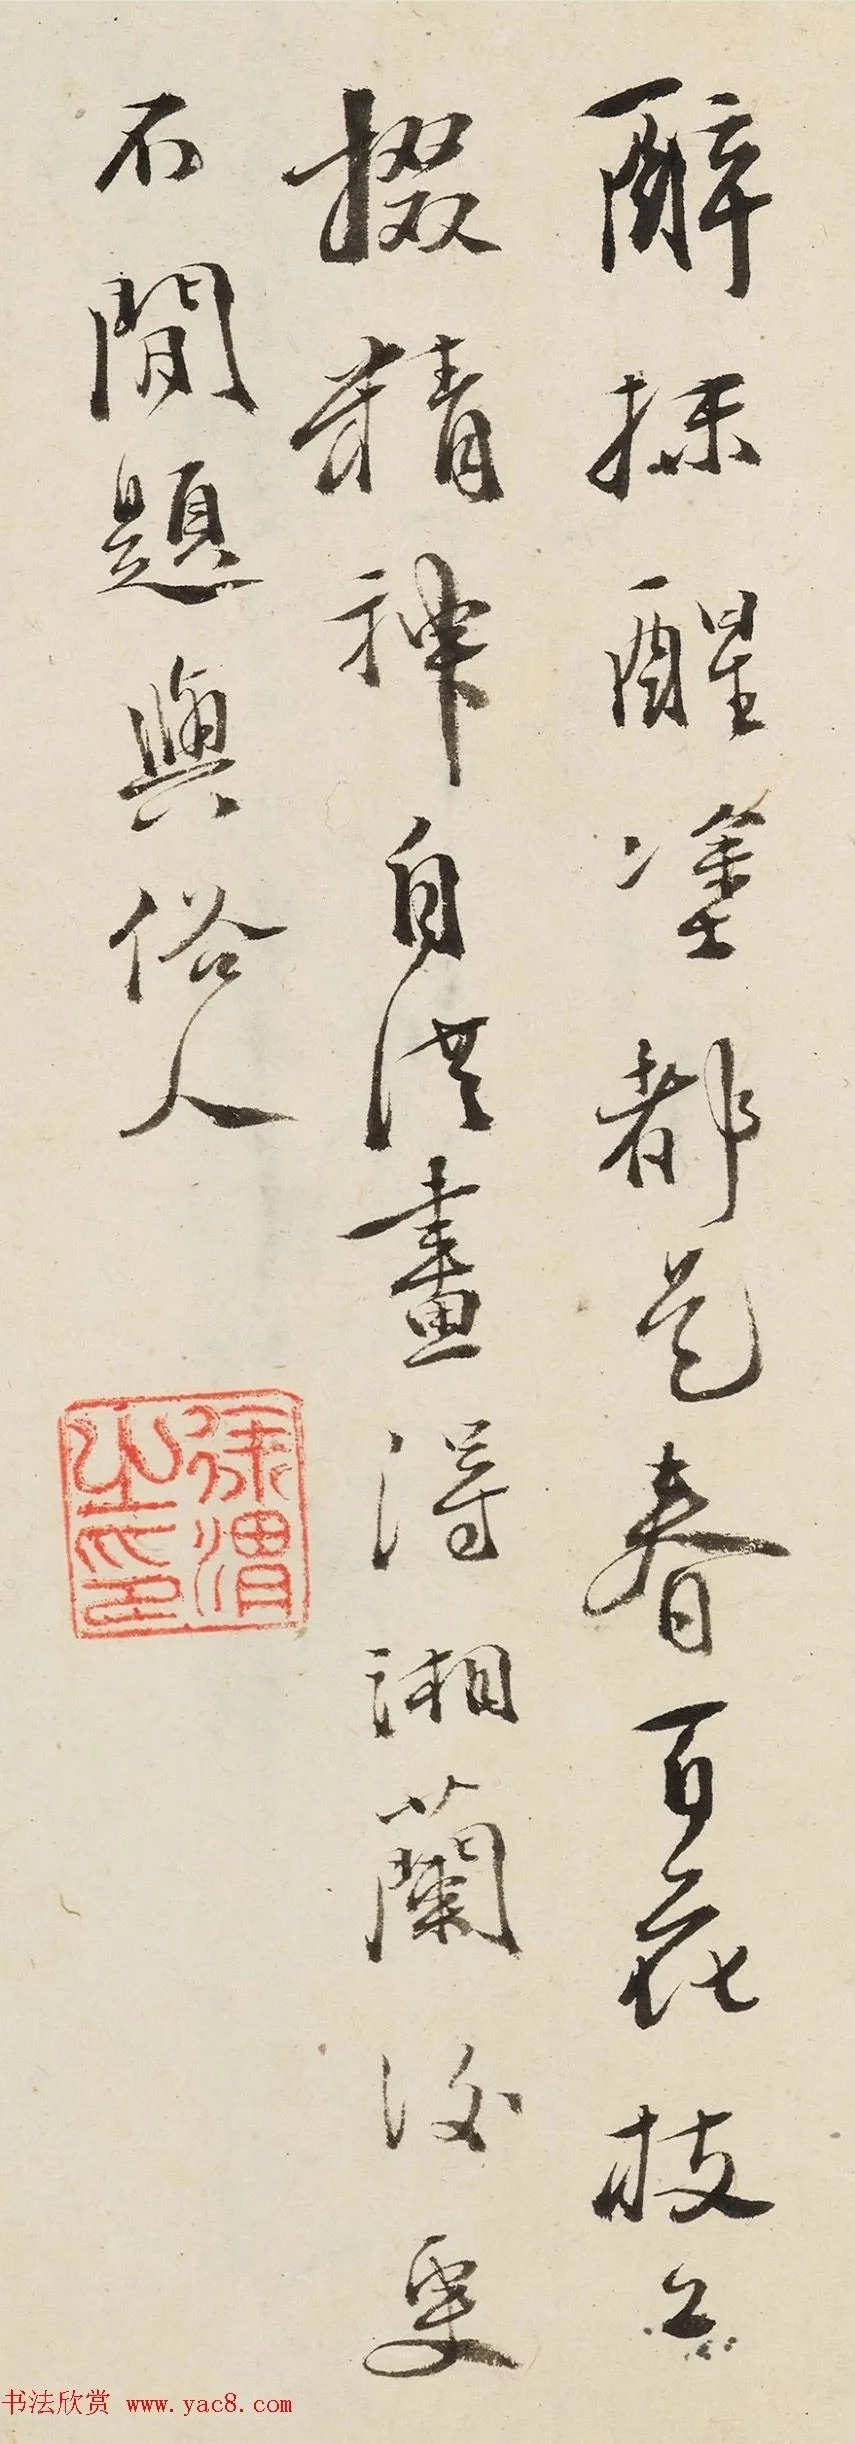 醉抹醒塗都是春百花枝上
掇精神自從畫得湘蘭後更
不閒題與俗人
徐渭
之印
书法欣赏 www.yac8.com